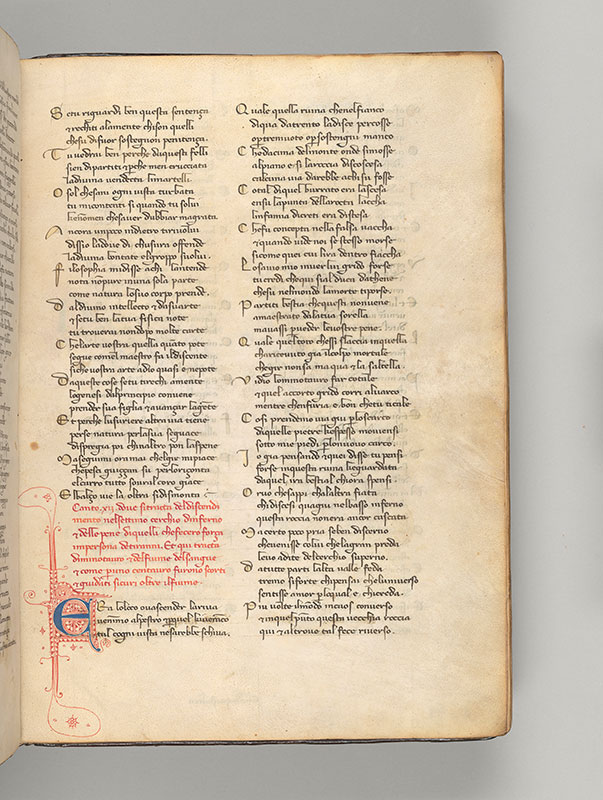 Se tu riguardi ben questa sentenza
e rechiti alamente chi son quelli
che su di fuor sostegnon penitenza.
Tu vedrai ben perche da questi felli
sien dipartiti e perche men cruciata
la divina vendetta li martelli.
O sol che sani ogni vista turbata
tu mi contenti si quando tu solvi
che non men che saver dubbiar magrata
Ancora un poco indietro ti rivolvi
dissio la dove di chusura offende
la divina bontate el groppo solvi.
Filosophia mi disse a chi lantende
nota non pur in una sola parte
come natura lo suo corso prende.
Dal divino intellecto e da su arte
e se tu ben la tua fisica note
tu troverai non dopo molte carte
Che larte vostra quella quanto pote
segue comel maestro fa il discente
si che vostra arte adio quasi e nepote
Da queste cose se tu ti rechi amente
lo genesi dal principio convene
prender sua figlia e avançar la gente
Et perche lusuriere altra via tiene
per se natura per la sua seguace
dispregia poi chinaltro pon la spene
Ma seguimi ora mai chel gir mi piace
che pesci guizzan su per lorizonta
el carro tutto soural coro giace
El balço vie la oltri si dismonta
Canto. xij. dove si tracta del discendi
mento nel settimo cerchio dinferno
e delle pene di quelli che fecero força
in persona de tiranni. Et qui tracta
di minotauro e del fiume del sangue
e come per uno centauro furono scorti
e guidati sicuri oltre il fiume.
Era lo loco ova scender la riva
venimmo alpestro e per quel chiveranco
tal chogni vista ne sarebbe schiva.
Quale quella ruina che nel fianco
di qua da trento ladice percosse
o per tremuoto o per sostegni manco
Che da cima del monte onde si mosse
al piano e si la roccia discoscesa
calcuna via darebbe a chi su fosse
Cotal di quel burrato era la scesa
en su la punta della rotta laccha
linfamia di creti era distesa
Che fu concepta nella falsa vaccha
e quando vide noi se stesso morse
si come quei cui lira dentro fiaccha
Lo savio mio in ver lui grido forse
tu credi che qui sial duca dathene
che su nel mondo la morte ti porse.
Partiti bestia che questi non vene
amaestrato dalatua sorella
ma vassi per veder le vostre pene.
Quale quel toro che si slaccia in quella
cha ricevuto gia il colpo mortale
che gir non sa ma qua e la saltella.
Vidio lo minotauro far cotale
e quel accorto grido corri al varco
mentre chen furia e bon che tu ti cale
Cosi prendemo via giu per lo scarco
di quelle pietre che spesso moviensi
sotto mie piedi per lo nuovo carco.
Io gia pensando e quei disse tu pensi
forse in questa ruina che guardata
da quel ira bestial chiora spensi.
Or vo che sappi che laltra fiata
chi discesi qua giu nel basso inferno
questa roccia non era ancor cascata.
Ma certo poco pria se ben discerno
che venisse colui che la gran preda
levo a dite del cerchio superno.
Da tutte parti lalta valle feda
tremo si forte chi pensai che luniverso
sentisse amor per lo qual e chi creda.
Piu volte il mondo in caos converso
e in quel punto questa vecchia roccia
qui e altrove tal fece riverso.